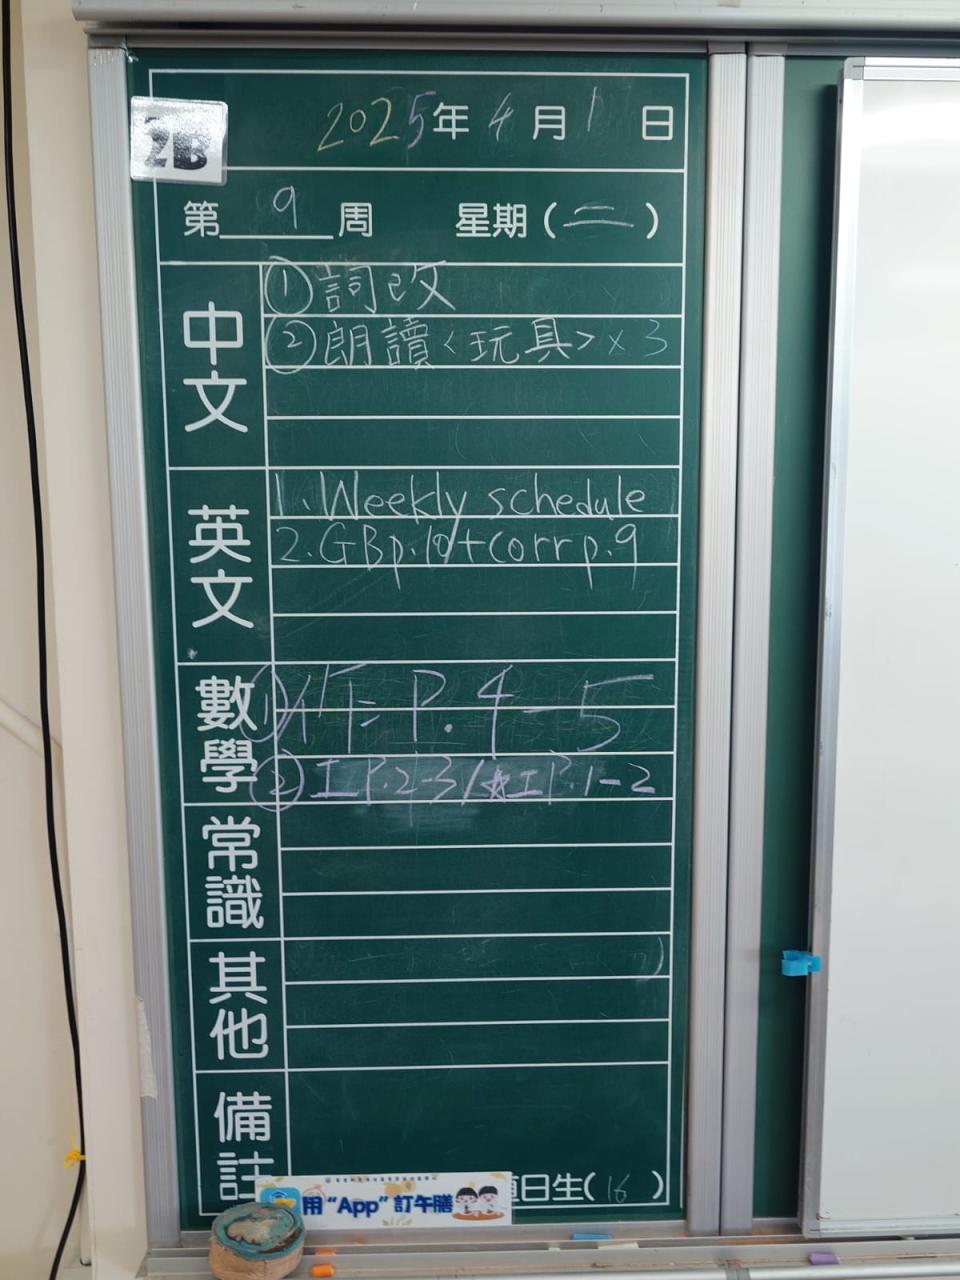 2B
2025年4月1日
第9周 星期(二)
中文
①詞改
②朗讀<玩具>×3
英文
1. Weekly schedule
2. GBp.10+corr p.9
數學
① 作= P.4-5
② 工P.2-3/★工P.1-2
常識
其他
備註
用“App”訂午膳
值日生(16)